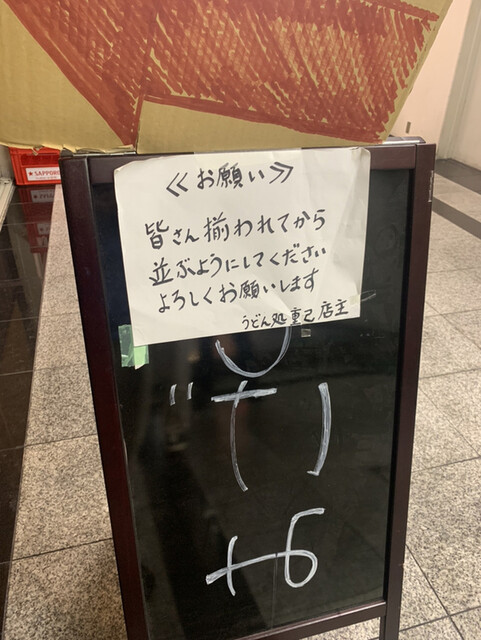 ≪お願い≫
皆さん揃われてから
並ぶようにしてください
よろしくお願いします
うどん処重己 店主
SAPPORO